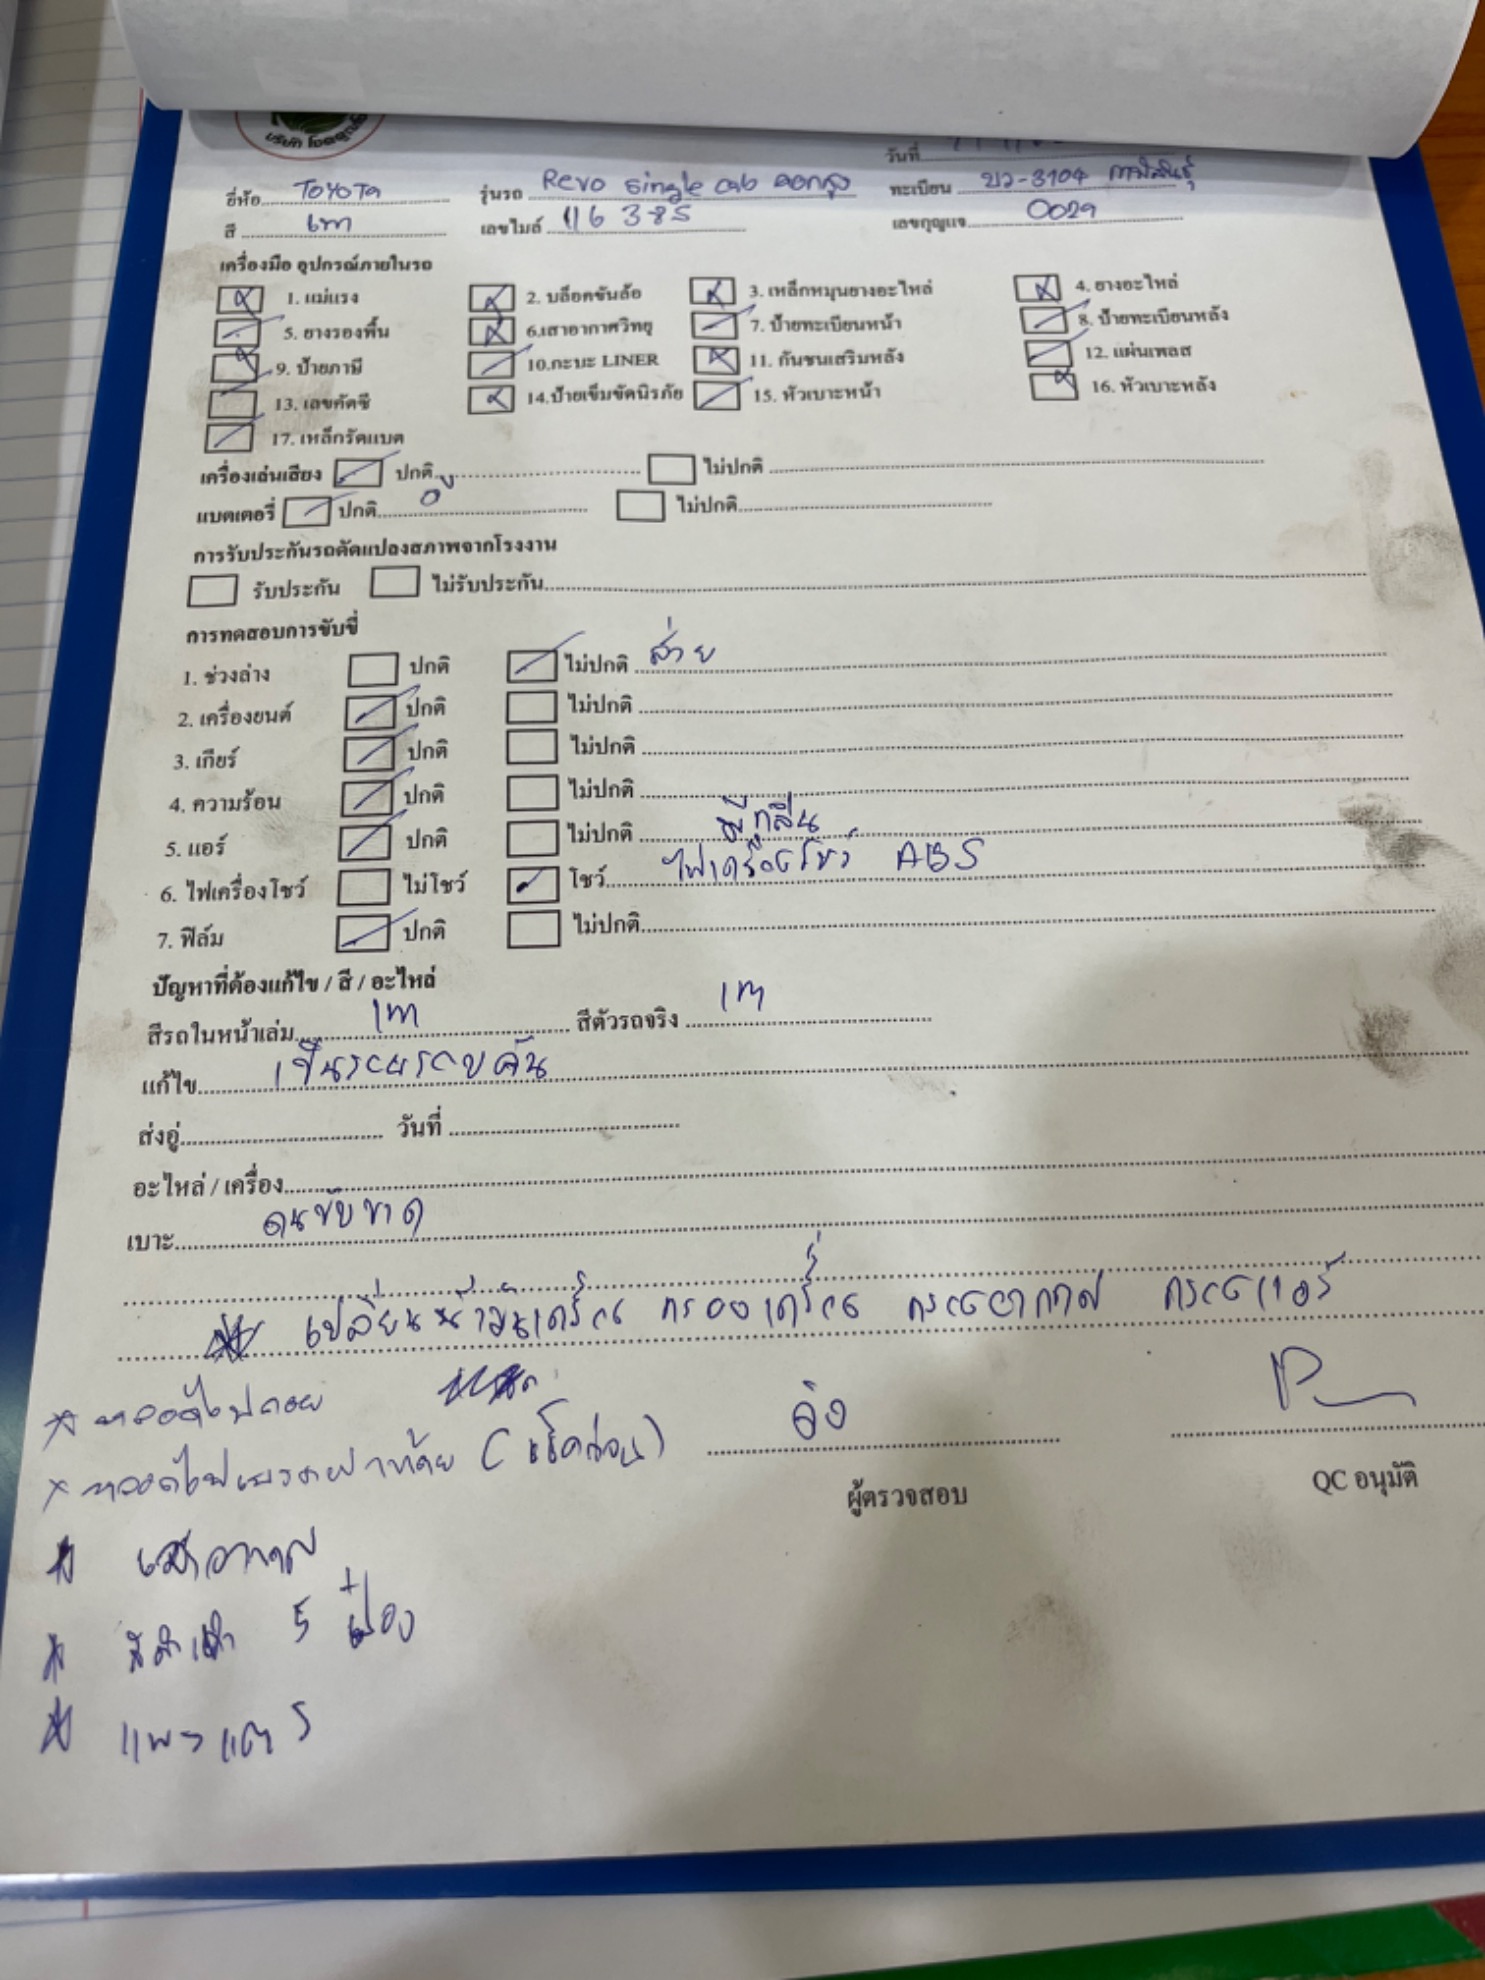 บริษัท
วันที่
ยี่ห้อ TOYOTA รุ่นรถ Revo single cab ทะเบียน บว-3104 กาฬสินธุ์
สี เทา เลขไมล์ 116385 เลขกุญแจ 0029
เครื่องมือ อุปกรณ์ภายในรถ
1. แม่แรง 2. บล็อคขันล้อ 3. เหล็กหมุนยางอะไหล่ 4. ยางอะไหล่
5. ยางรองพื้น 6.เสาอากาศวิทยุ 7. ป้ายทะเบียนหน้า 8. ป้ายทะเบียนหลัง
9. ป้ายภาษี 10.กะบะ LINER 11. กันชนเสริมหลัง 12. แผ่นเพลส
13. เลขคัตซี 14.ป้ายเข็มขัดนิรภัย 15. หัวเบาะหน้า 16. หัวเบาะหลัง
17. เหล็กรัดแบต
เครื่องเล่นเสียง ปกติ ไม่ปกติ
แบตเตอรี่ ปกติ ไม่ปกติ
การรับประกันรถดัดแปลงสภาพจากโรงงาน
รับประกัน ไม่รับประกัน
การทดสอบการขับขี่
1. ช่วงล่าง ปกติ ไม่ปกติ ส่าย
2. เครื่องยนต์ ปกติ ไม่ปกติ
3. เกียร์ ปกติ ไม่ปกติ
4. ความร้อน ปกติ ไม่ปกติ
5. แอร์ ปกติ ไม่ปกติ มีกลิ่น
6. ไฟเครื่องโชว์ ไม่โชว์ โชว์ ไฟเครื่องโชว์ ABS
7. ฟิล์ม ปกติ ไม่ปกติ
ปัญหาที่ต้องแก้ไข / สี / อะไหล่
สีรถในหน้าเล่ม เทา สีตัวรถจริง เทา
แก้ไข เป็นรอยรอบคัน
ส่งอู่ วันที่
อะไหล่ / เครื่อง
เบาะ คนขับขาด
เปลี่ยนน้ำมันเครื่อง กรองเครื่อง กรองอากาศ กรองแอร์
* หลอดไฟถอย
* หลอดไฟเบรคฝาท้าย
อิง
ผู้ตรวจสอบ QC อนุมัติ
* เสาอากาศ
* 5
*